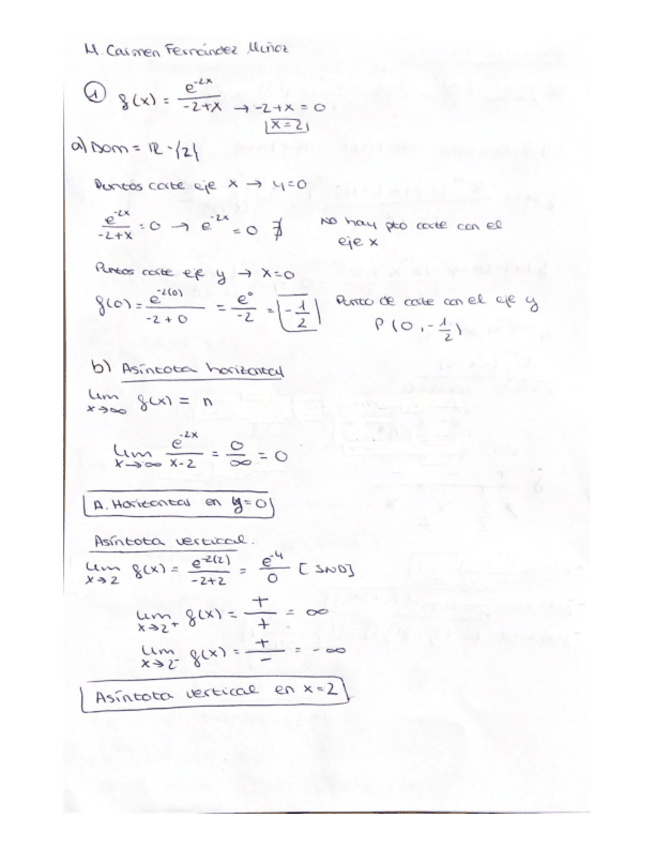 M. Carmen Fernández Muñoz
① f(x) = e^-2x / -2+x → -2+x = 0
x = 2
a) Dom = ℝ - {2}
Puntos corte eje x → y=0
e^-2x / -2+x = 0 → e^-2x = 0 ∄ No hay pto corte con el eje x
Puntos corte eje y → x=0
f(0) = e^-2(0) / -2+0 = e^0 / -2 = -1/2 Punto de corte con el eje y
P (0, -1/2)
b) Asíntota horizontal
lim x→∞ f(x) = n
lim x→∞ e^-2x / x-2 = 0/∞ = 0
A. Horizontal en y=0
Asíntota vertical.
lim x→2 f(x) = e^-2(2) / -2+2 = e^-4 / 0 [IND]
lim x→2+ f(x) = +/+ = ∞
lim x→2- f(x) = +/- = -∞
Asíntota vertical en x=2